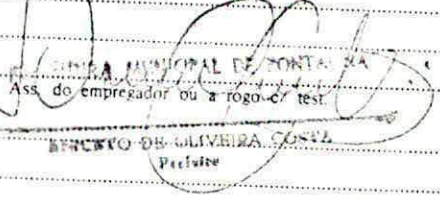 MUNICIPAL DE PONTA
Ass. do empregador ou a rogo c/ test.
DE OLIVEIRA COSTA
Prefeito